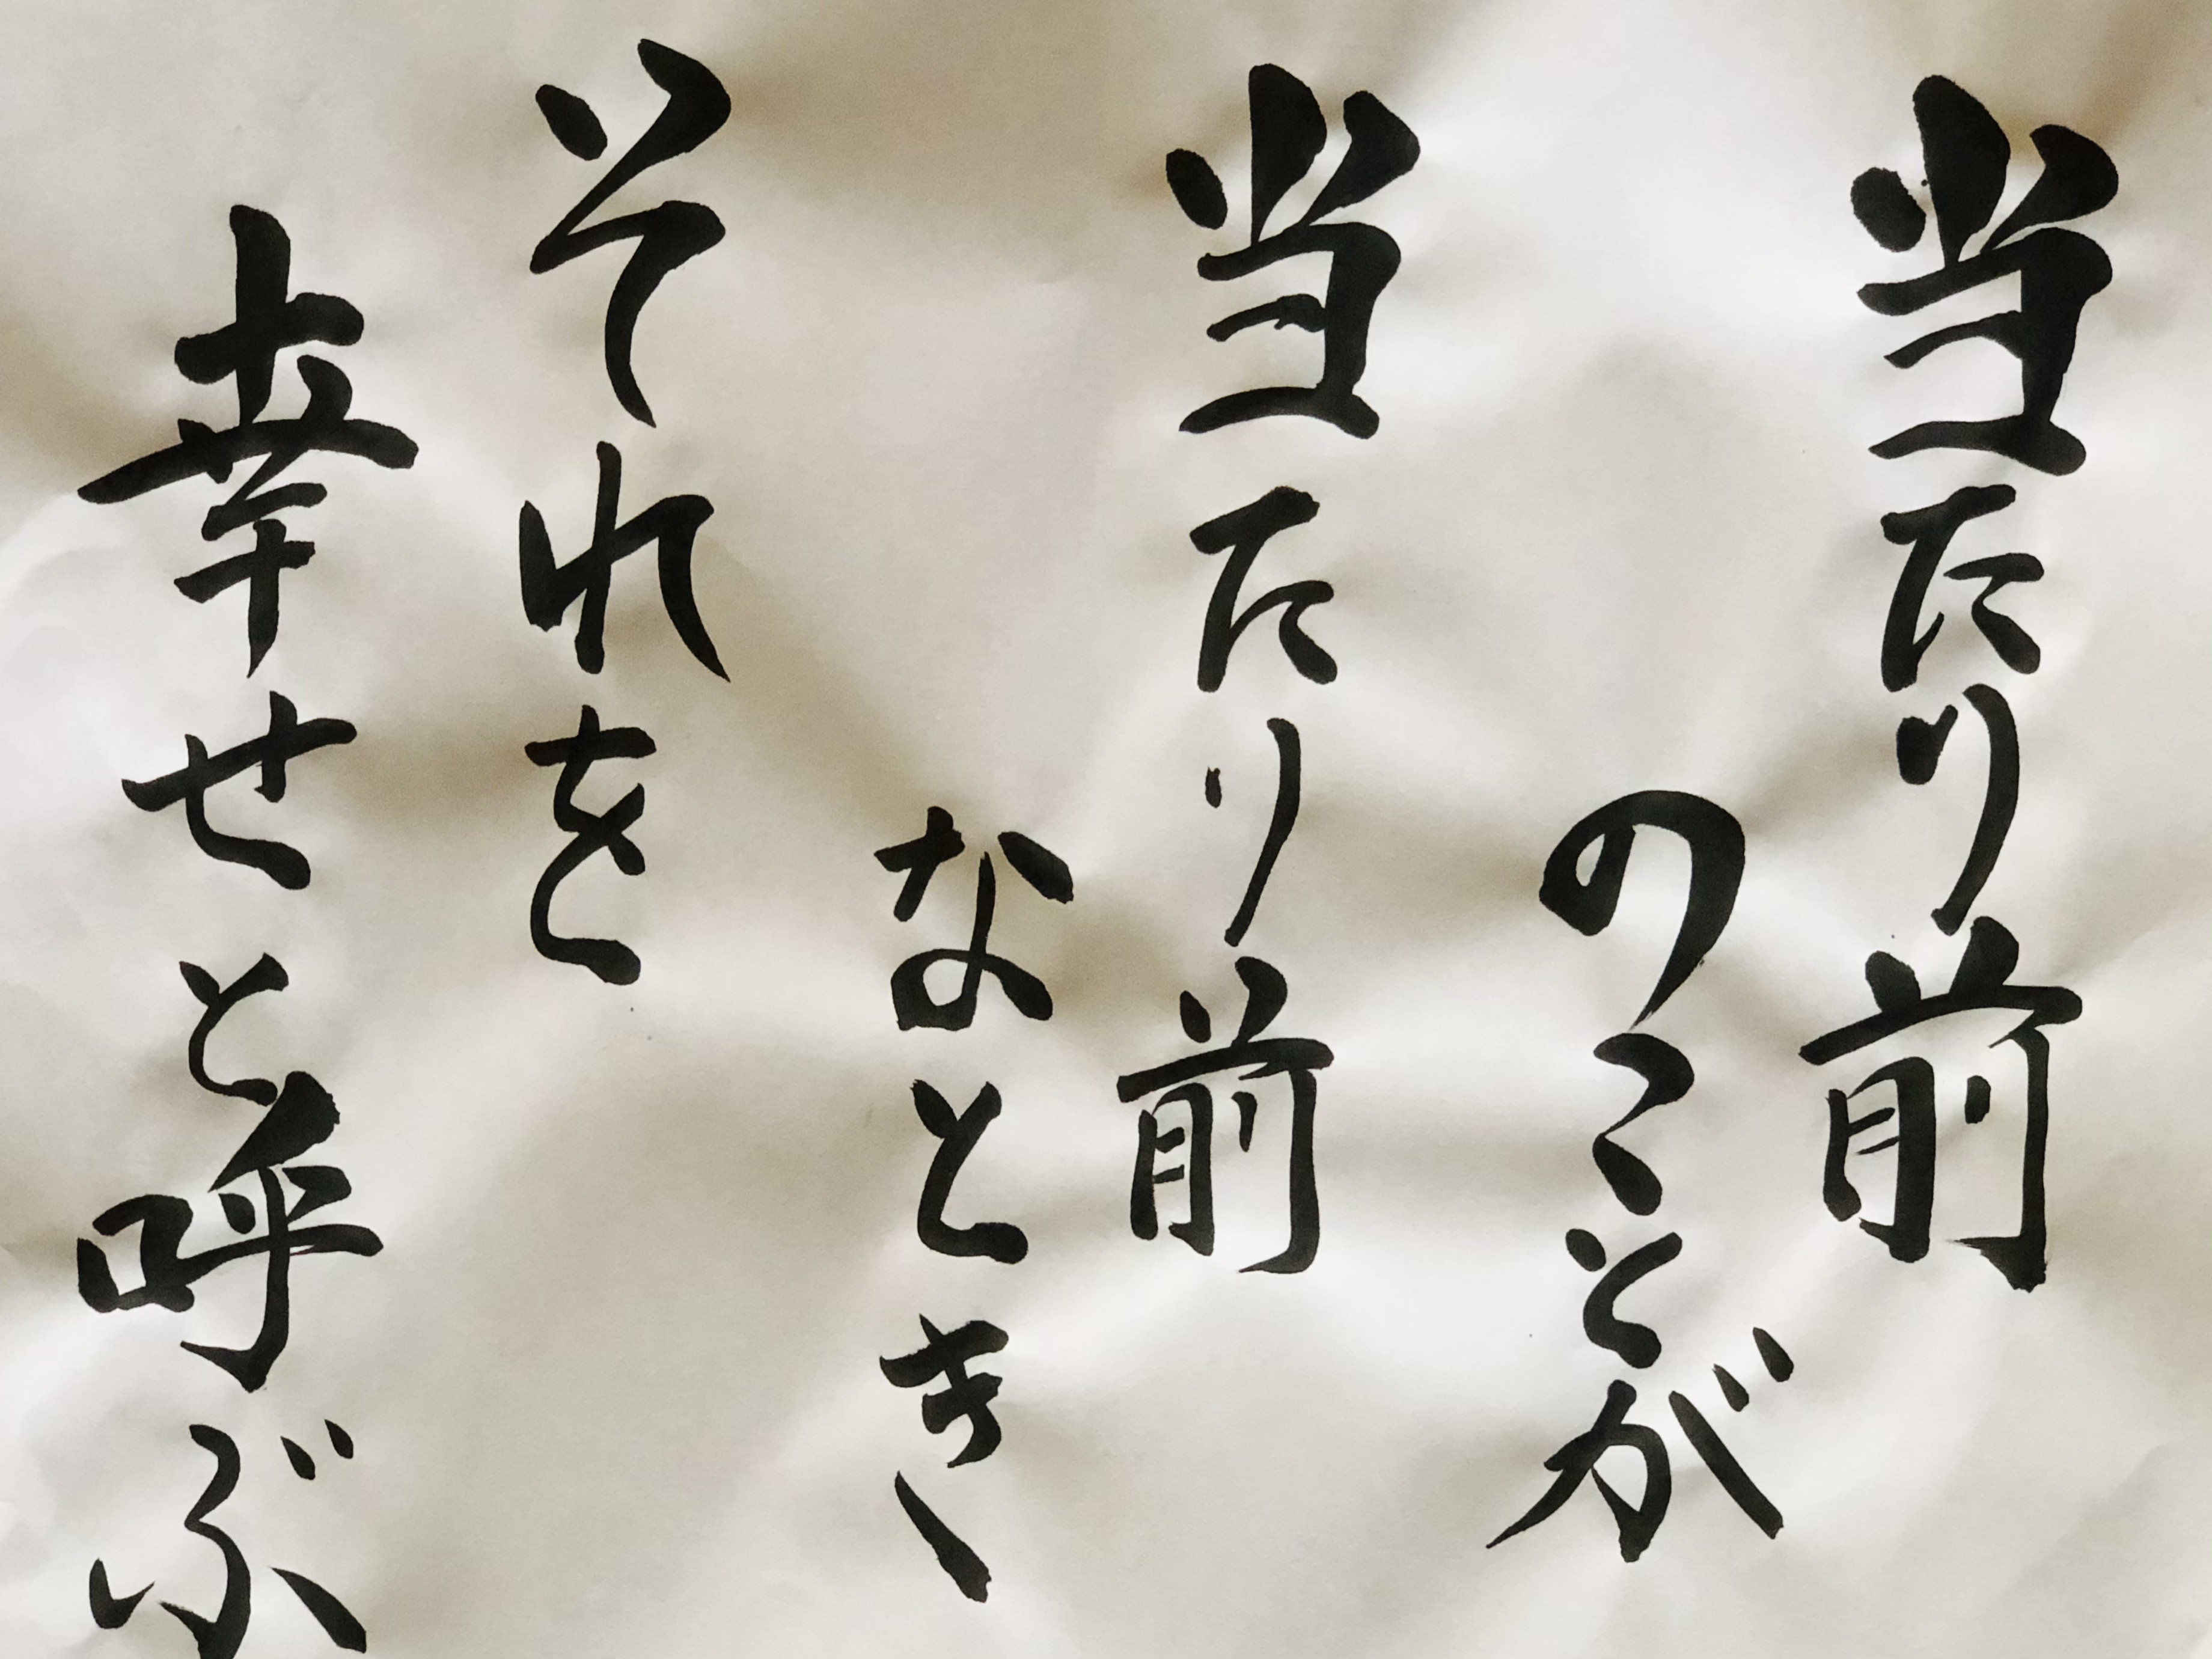 当たり前
のことが
当たり前
なとき
それを
幸せと呼ぶ